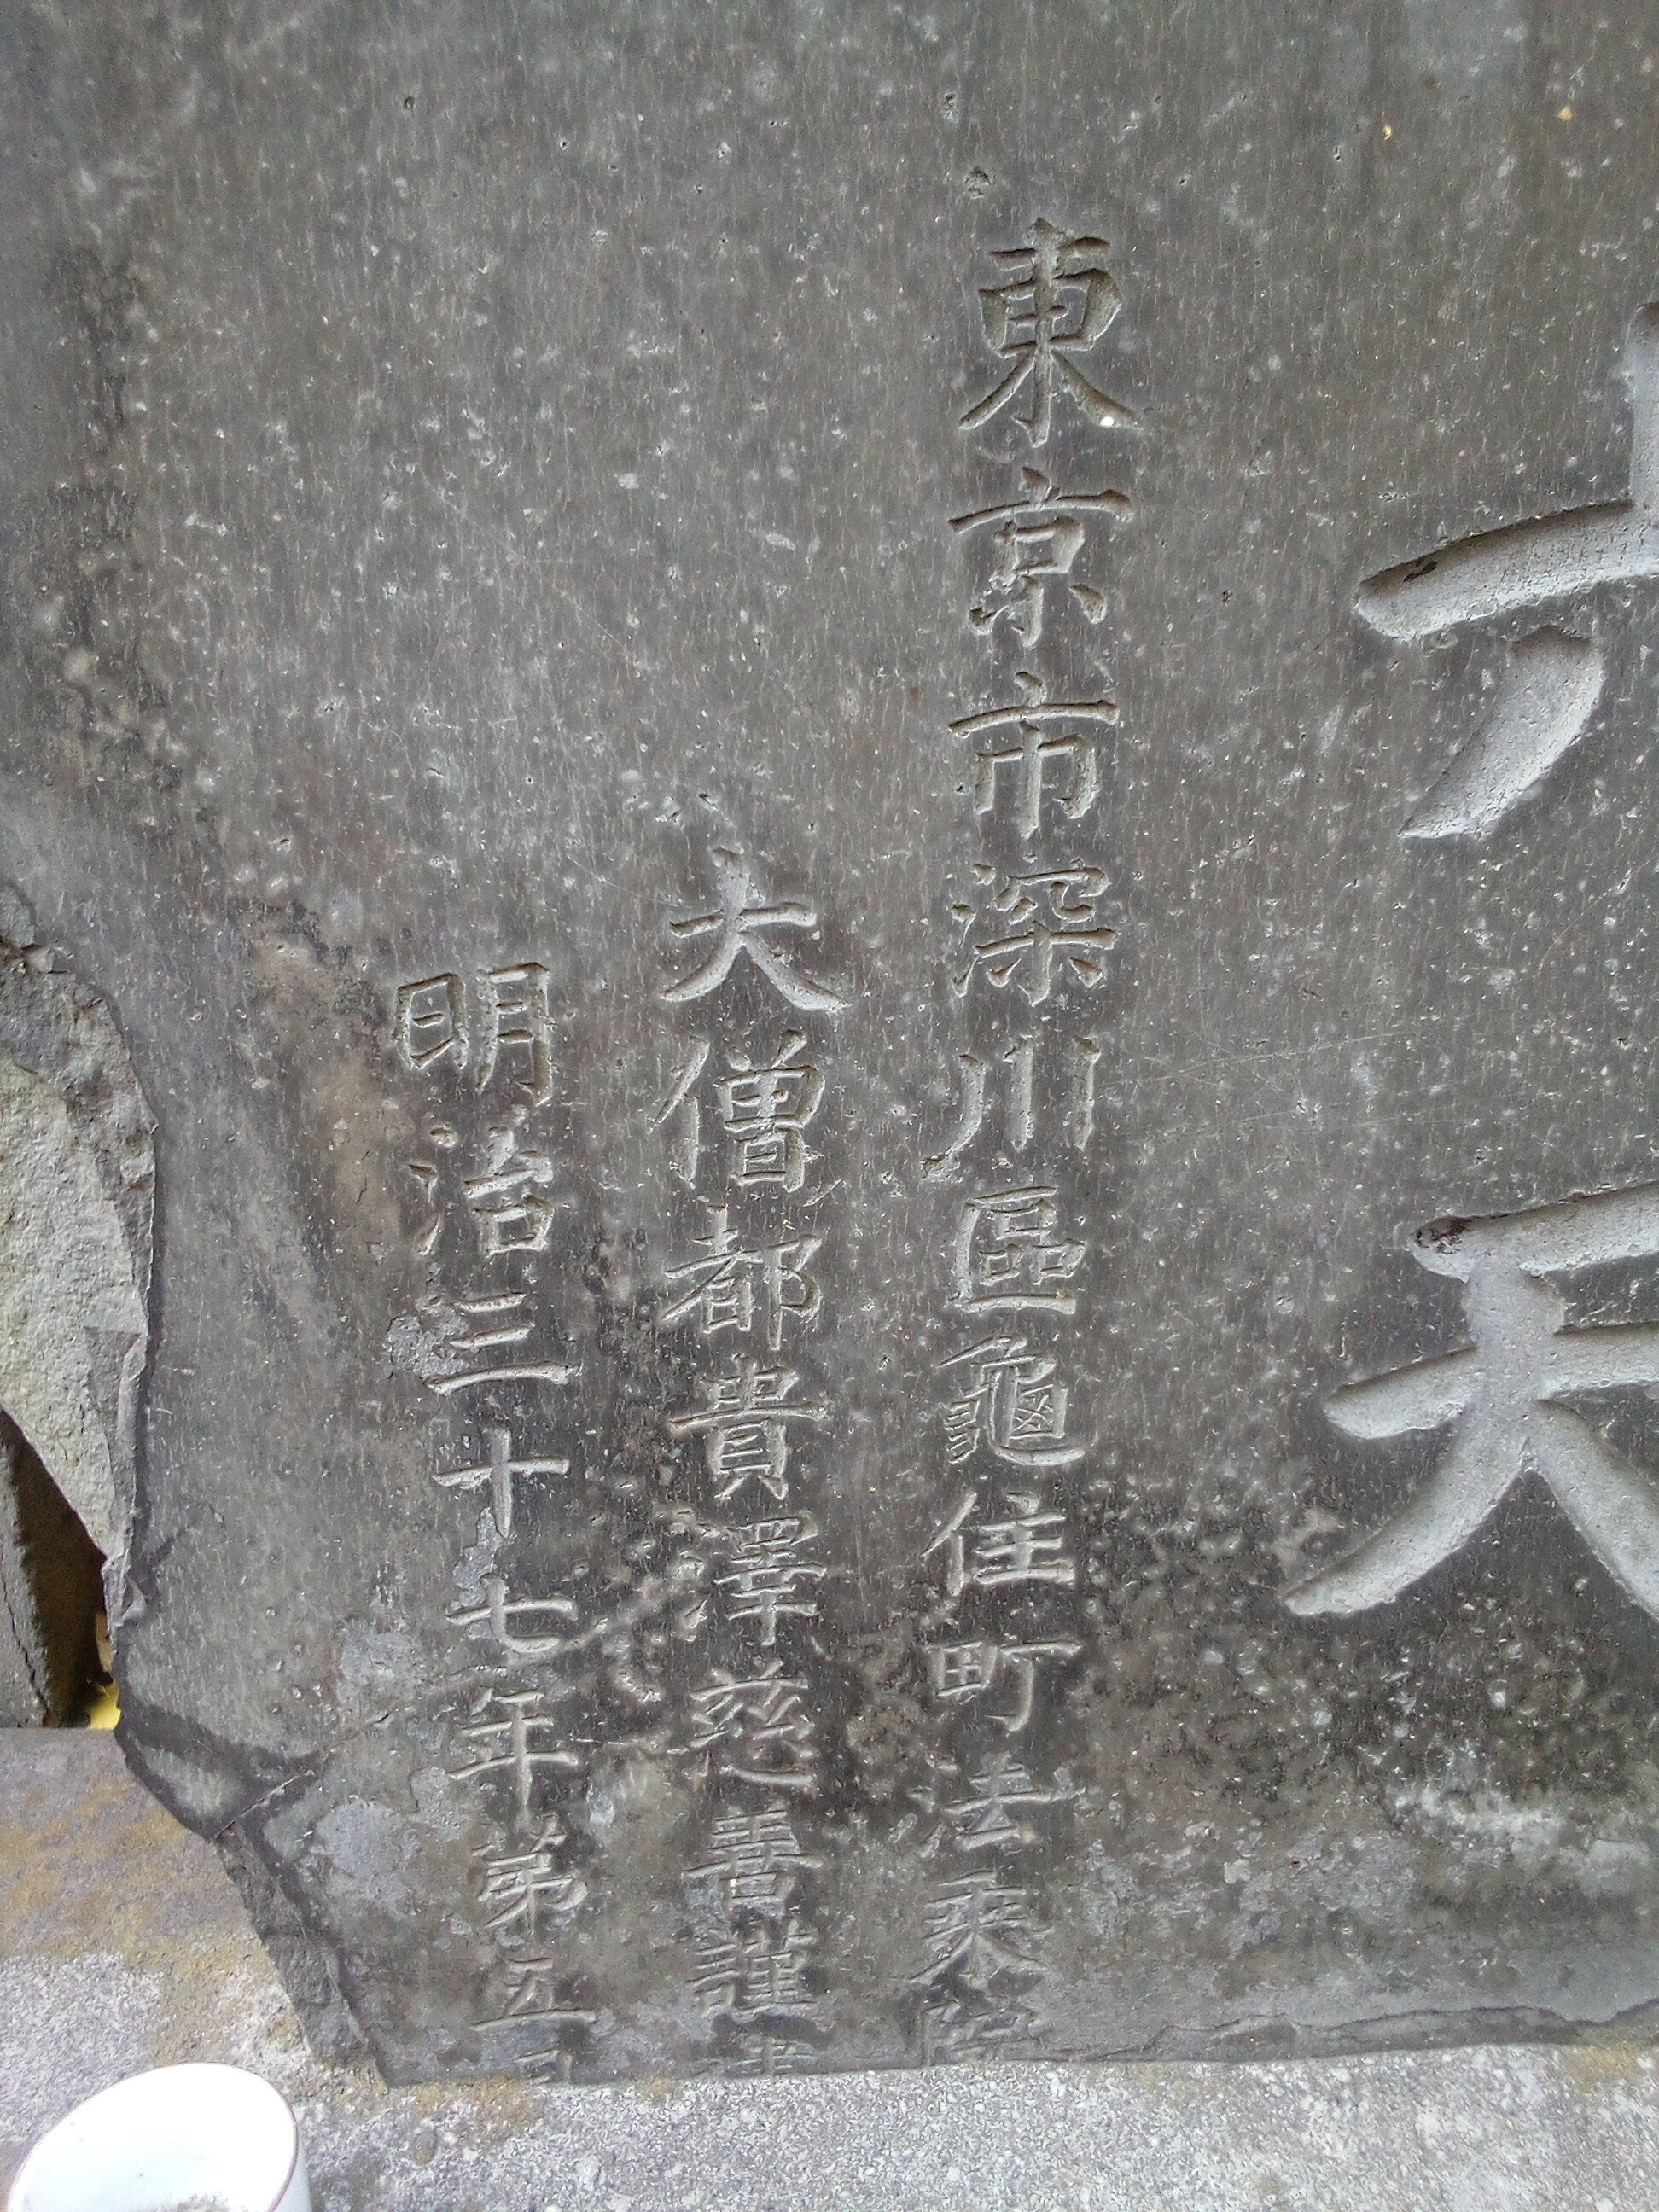 東京市深川區龜住町法乘院
大僧都貴澤慈善謹
明治三十七年第五月